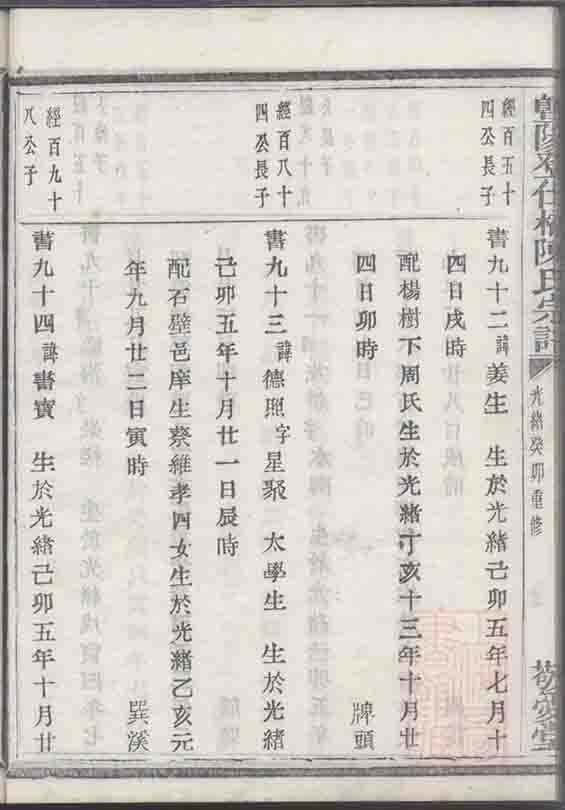 陽仕橋陳氏宗譜
光緒癸卯重修
敬愛堂
經百五十
四公長子
書九十二諱姜生　生於光緒己卯五年七月十
四日戌時
配楊樹下周氏生於光緒丁亥十三年十月廿
四日卯時　牌頭
經百八十
四公長子
書九十三諱德照字星聚　太學生　生於光緒
己卯五年十月廿一日辰時
配石壁邑庠生蔡維孝四女生於光緒乙亥元
年九月廿二日寅時　巽溪
經百九十
八公子
書九十四諱書寶　生於光緒己卯五年十月廿